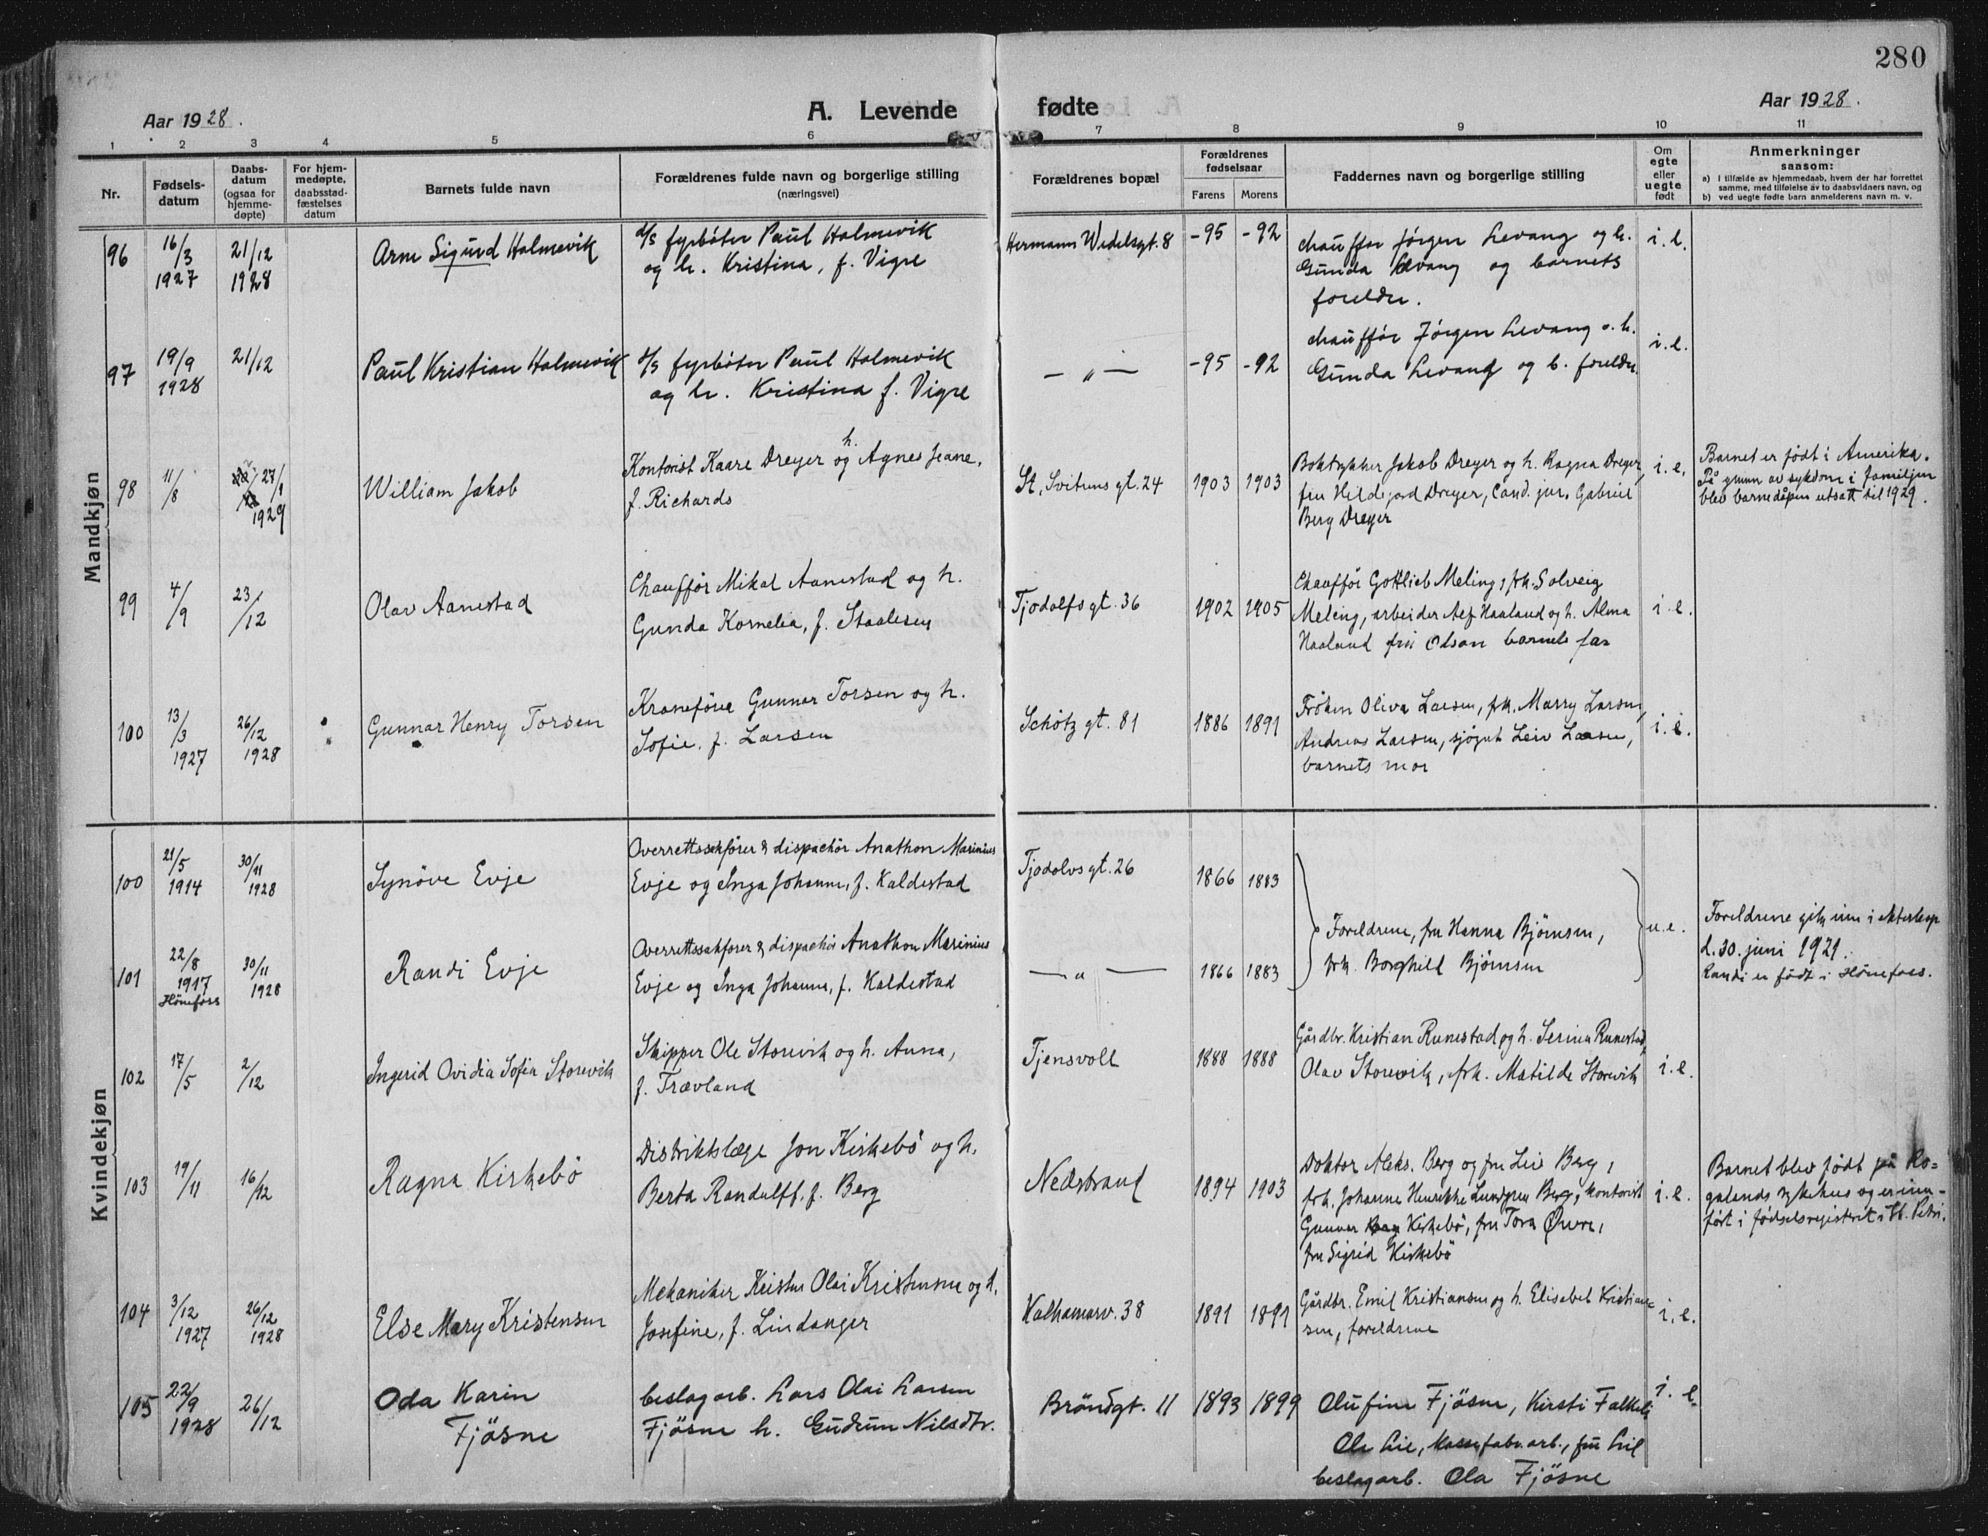 280
Aar 1928.
A. Levende fødte
Aar 1928.
1 2 3 4 5 6 7 8 9 10 11
Nr.
Fødsels-
datum
Daabs-
datum
(ogsaa for
hjemme-
døpte)
For hjem-
medøpte,
daabsstad-
fæstelses
datum
Barnets fulde navn
Forældrenes fulde navn og borgerlige stilling
(næringsvei)
Forældrenes bopæl
Forældrenes
fødselsaar
Farens Morens
Faddernes navn og borgerlige stilling
Om
egte
eller
uegte
født
Anmerkninger
saasom:
a) I tilfælde av hjemmedaab, hvem der har forrettet
samme, med tilføielse av to daabsvidners navn, og
b) ved uegte fødte barn anmelderens navn m. v.
Mandkjøn
96
16/3
1927
21/12
1928
Arne Sigurd Holmevik
d/s fyrbøter Paul Holmevik
og h. Kristina, f. Vigre
Hermann Wedelsgt. 8
-95 -92
chauffør Jørgen Levang og h.
Gunda Levang og barnets
foreldre.
i. e.
97
19/9
1928
21/12
Paul Kristian Holmevik
d/s fyrbøter Paul Holmevik
og h. Kristina f. Vigre
— „ —
-95 -92
chauffør Jørgen Levang o. h.
Gunda Levang og b. foreldre
i. e.
98
11/8
27/1
1929
William Jakob
Kontorist Kaare Dreyer og h. Agnes Jeane,
f. Richards
St. Svituns gt. 24
1903 1903
Boktrykker Jakob Dreyer og h. Ragna Dreyer,
fru Hildegard Dreyer, Cand. jur. Gabriel
Berg Dreyer
i. e.
Barnet er født i Amerika.
På grunn av sykdom i familjen
blev barnedåpen utsatt til 1929.
99
4/9
23/12
Olav Aanestad
Chauffør Mikal Aanestad og h.
Gunda Kornelia, f. Staalesen
Tjodolfsgt. 36
1902 1905
Chauffør Gottlieb Meling, frk. Solveig
Meling, arbeider Alf Haaland og h. Alma
Haaland fru Olsen barnets far
i. e.
100
13/3
1927
26/12
1928
Gunnar Henry Torsen
Kranefører Gunnar Torsen og h.
Sofie, f. Larsen
Schøtz gt. 81
1886 1891
Frøken Oliva Larsen, frk. Marry Larsen,
Andreas Larsen, sjøgut Leiv Larsen,
barnets mor
i. e.
Kvindekjøn
100
21/5
1914
30/11
1928
Synöve Evje
Overrettssakfører & dispachör Anathon Marinius
Evje og Inga Johanne, f. Kaldestad
Tjodolvs gt. 26
1866 1883
101
22/8
1917
Hönefoss
30/11
1928
Randi Evje
Overrettssakfører & dispachör Anathon Marinius
Evje og Inga Johanne, f. Kaldestad
— „ —
1866 1883
Foreldrene, fru Hanna Bjørnsen,
frk. Borghild Bjørnsen
u. e.
Foreldrene gikk inn i ekteskap
d. 30. juni 1921.
Randi er født i Hönefoss.
102
17/5
2/12
Ingerid Ovidia Sofia Storevik
Skipper Ole Storevik og h. Anna,
f. Trævland
Tjensvoll
1888 1888
Gårdbr. Kristian Runestad og h. Serina Runestad,
Olav Storevik, frk. Matilde Storevik
i. e.
103
19/11
16/12
Ragna Kirkebö
Distriktslæge Jon Kirkebö og h.
Berta Randulff, f. Berg
Nedstrand
1894 1903
Doktor Aleks. Berg og fru Liv Berg,
frk. Johanne Henrikke Lundgren Berg, kontorist
Gunnar Kirkebö, fru Tora Övre,
fru Sigrid Kirkebö
i. e.
Barnet blev født på Ro-
galands sykehus og er inn-
ført i fødselsregistret i St. Petri.
104
3/12
1927
26/12
1928
Else Mary Kristensen
Mekaniker Olai Kristensen og h.
Josefine, f. Lindanger
Kalhamarv. 38
1891 1891
Gårdbr. Emil Kristiansen og h. Elisabet Kristian-
sen, foreldrene
i. e.
105
22/9
1928
26/12
Oda Karin
Fjösne
beslagarb. Lars Olai Larsen
Fjösne h. Gudrun Nilsdtr.
Bröndgt. 11
1893 1899
Olufine Fjösne, Kirsti
Ole Lie, fabr. arb., fru Lie
beslagarb. Ola Fjösne
i. e.